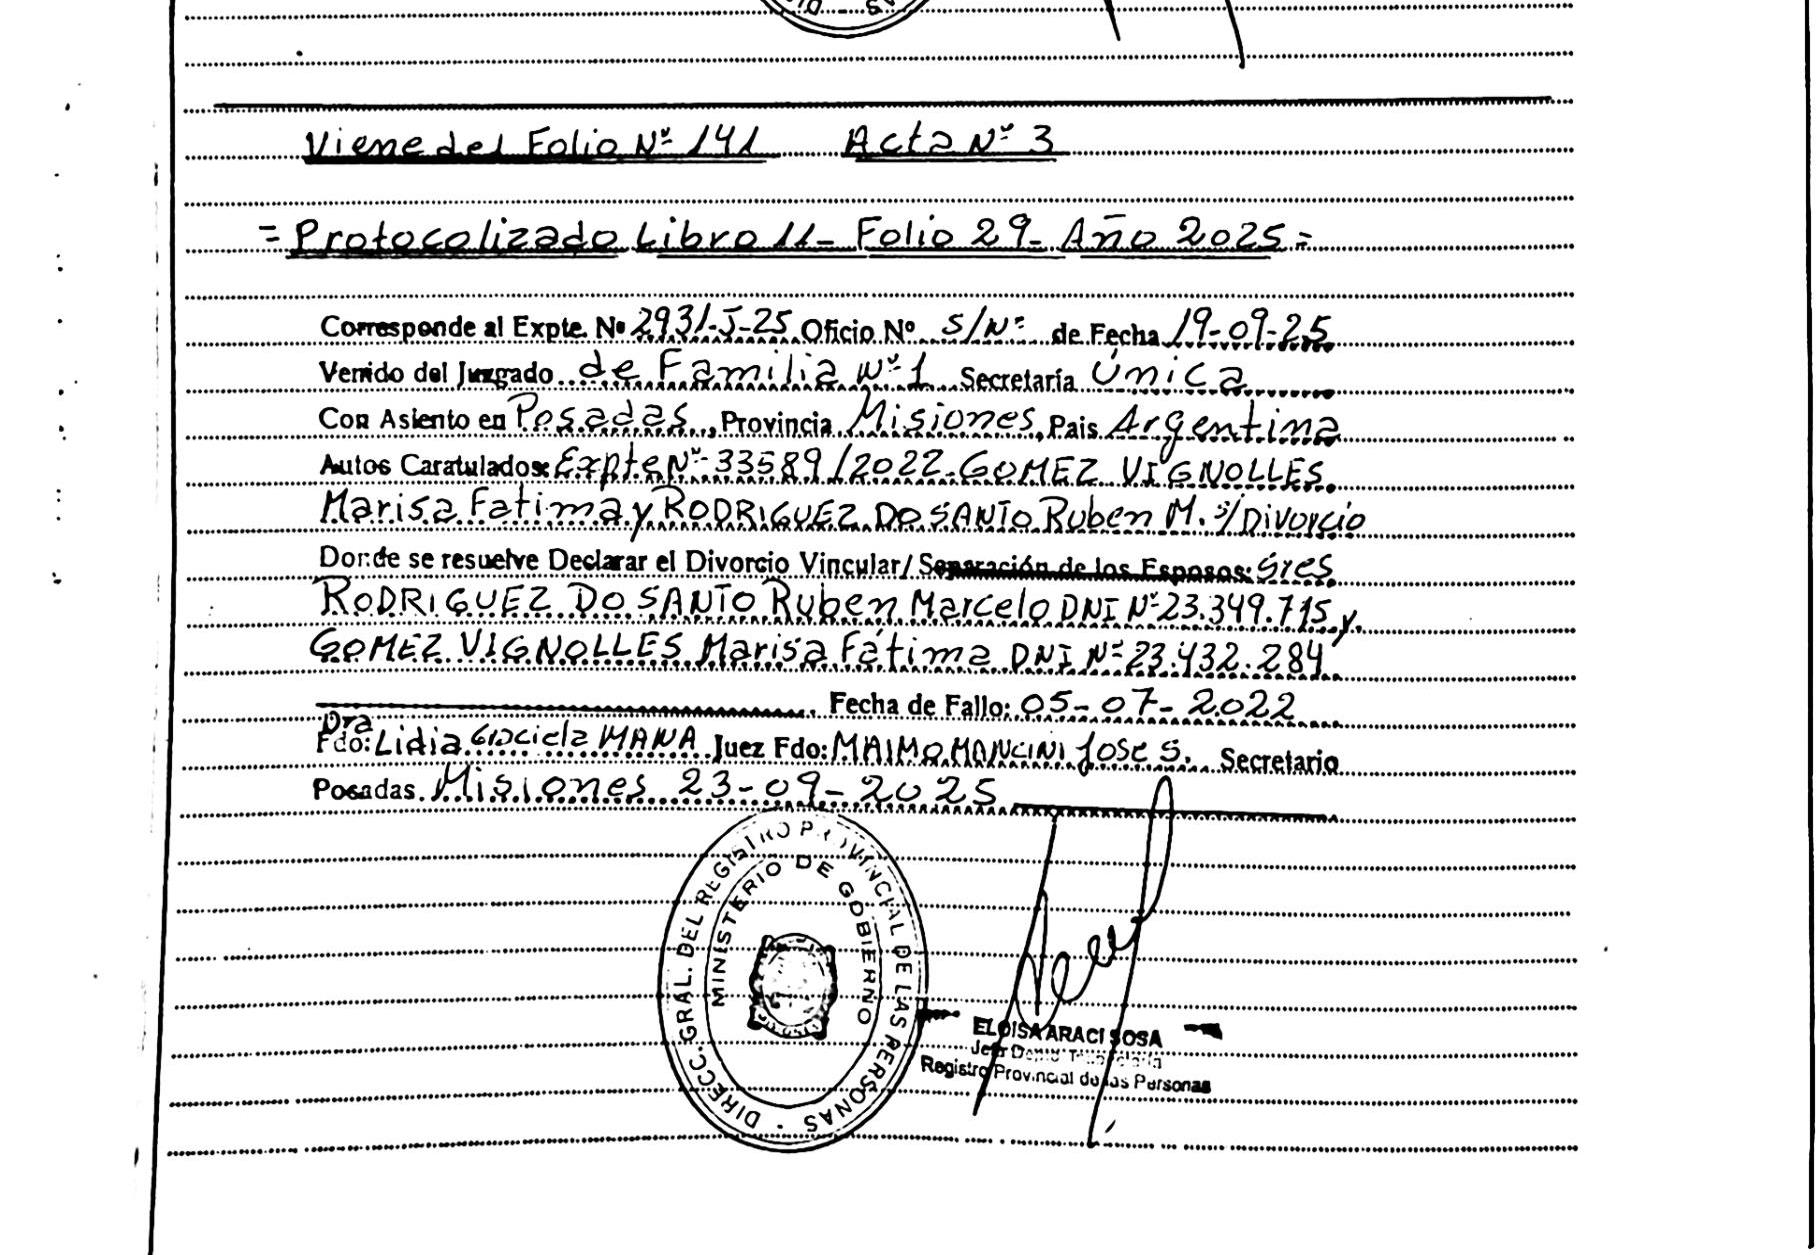 Viene del Folio Nº 141 Acta Nº 3
= Protocolizado Libro 11 - Folio 29 - Año 2025 =
Corresponde al Expte. Nº 2931-J-25 Oficio Nº S/Nº de Fecha 19-09-25
Venido del Juzgado de Familia Nº 1 Secretaría Única
Con Asiento en Posadas, Provincia Misiones, Pais Argentina
Autos Caratulados: Expte Nº 33589/2022. GOMEZ VIGNOLLES
Marisa Fatima y RODRIGUEZ DO SANTO Ruben M. s/Divorcio
Donde se resuelve Declarar el Divorcio Vincular/ Separación de los Esposos: Sres
RODRIGUEZ DO SANTO Ruben Marcelo DNI Nº 23.349.715 y
GOMEZ VIGNOLLES Marisa Fátima DNI Nº 23.432.284
Fecha de Fallo: 05-07-2022
Dra
Fdo: Lidia Graciela MANA Juez Fdo: MAIMO MANCINI Jose S. Secretario
Posadas. Misiones 23-09-2025
DIRECC. GRAL. DEL REGISTRO PROVINCIAL DE LAS PERSONAS
MINISTERIO DE GOBIERNO
ELOISA ARACI SOSA
Registro Provincial de las Personas